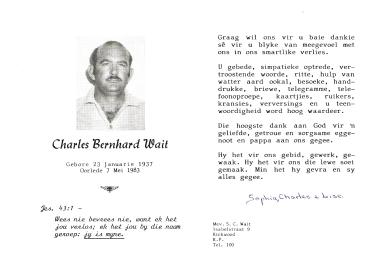 Charles Bernhard Wait
Gebore 23 Januarie 1937
Oorlede 7 Mei 1983
Jes. 43:1 -
Wees nie bevrees nie, want ek het
jou verlos; ek het jou by die naam
geroep: jy is myne.
Graag wil ons vir u baie dankie
sê vir u blyke van meegevoel met
ons in ons smartlike verlies.
U gebede, simpatieke optrede, ver-
troostende woorde, ritte, hulp van
watter aard ookal, besoeke, hand-
drukke, briewe, telegramme, tele-
foonoproepe, kaartjies, ruikers,
kransies, verversings en u teen-
woordigheid word hoog waardeer.
Die hoogste dank aan God vir 'n
geliefde, getroue en sorgsame egge-
noot en pappa aan ons gegee.
Hy het vir ons gebid, gewerk, ge-
waak. Hy het vir ons die lewe soet
gemaak. Min het hy gevra en sy
alles gegee.
Sophia, Charles &
Mev. S. C. Wait
9
Tel. 100